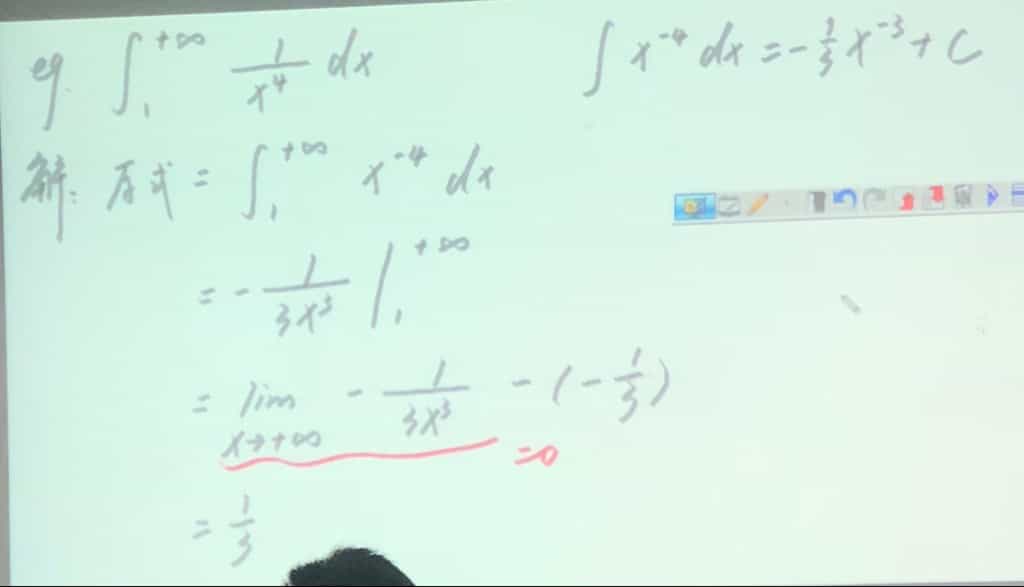 eg. ∫₁^{+∞} 1/x⁴ dx
∫ x⁻⁴ dx = -1/3 x⁻³ + C
解: 原式 = ∫₁^{+∞} x⁻⁴ dx
= - 1/(3x³) |₁^{+∞}
= lim_{x→+∞} - 1/(3x³) - (-1/3)
=0
= 1/3